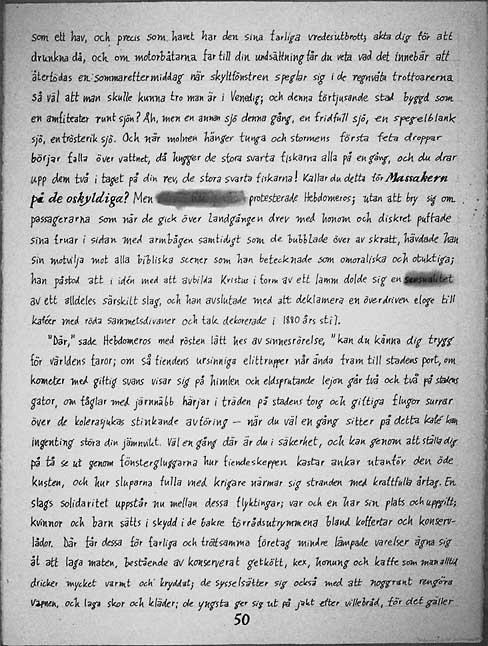 som ett hav, och precis som havet har den sina farliga vredesutbrott; akta dig för att
drunkna då, och om motorbåtarna far till din undsättning får du veta vad det innebär att
återfödas en sommareftermiddag när skyltfönstren speglar sig i de regnvåta trottoarerna
så väl att man skulle kunna tro man är i Venedig; och denna förtjusande stad byggd som
en amfiteater runt sjön? Ah, men en annan sjö denna gång, en fridfull sjö, en spegelblank
sjö, en trösterik sjö. Och när molnen hänger tunga och stormens första feta droppar
börjar falla över vattnet, då hugger de stora svarta fiskarna alla på en gång, och du drar
upp dem två i taget på din rev, de stora svarta fiskarna! Kallar du detta för Massakern
på de oskyldiga? Men protesterade Hebdomeros; utan att bry sig om
passagerarna som när de gick över landgången drev med honom och diskret puffade
sina fruar i sidan med armbågen samtidigt som de bubblade över av skratt, hävdade han
sin motvilja mot alla bibliska scener som han betecknade som omoraliska och obuktiga;
han påstod att i idén med att avbilda Kristus i form av ett lamm dolde sig en sensualitet
av ett alldeles särskilt slag, och han avslutade med att deklamera en överdriven eloge till
kaféer med röda sammetsdivaner och tak dekorerade i 1880 års stil.
"Där," sade Hebdomeros med rösten lätt hes av sinnesrörelse, "kan du känna dig trygg
för världens faror; om så fiendens ursinniga elittrupper når ända fram till stadens port, om
kometer med giftig svans visar sig på himlen och eldsprutande lejon går två och två på stadens
gator, om fåglar med järnnäbb härjar i träden på stadens torg och giftiga flugor surrar
över de kolerasjukas stinkande avföring — när du väl en gång sitter på detta kafé kan
ingenting störa din jämnvikt. Väl en gång där är du i säkerhet, och kan genom att ställa dig
på tå se ut genom fönstergluggarna hur fiendeskeppen kastar ankar utanför den öde
kusten, och hur sluparna fulla med krigare närmar sig stranden med kraftfulla årtag. En
slags solidaritet uppstår nu mellan dessa flyktingar; var och en har sin plats och uppgift;
kvinnor och barn sätts i skydd i de bakre förrådsutrymmena bland koffertar och konserv-
lådor. Där får dessa för farliga och tröttsamma företag mindre lämpade varelser ägna sig
åt att laga maten, bestående av konserverat getkött, kex, honung och kaffe som man alltid
dricker mycket varmt och kryddat; de sysselsätter sig också med att noggrant rengöra
vapnen, och laga skor och kläder; de yngsta ger sig ut på jakt efter villebråd, för det gäller
50